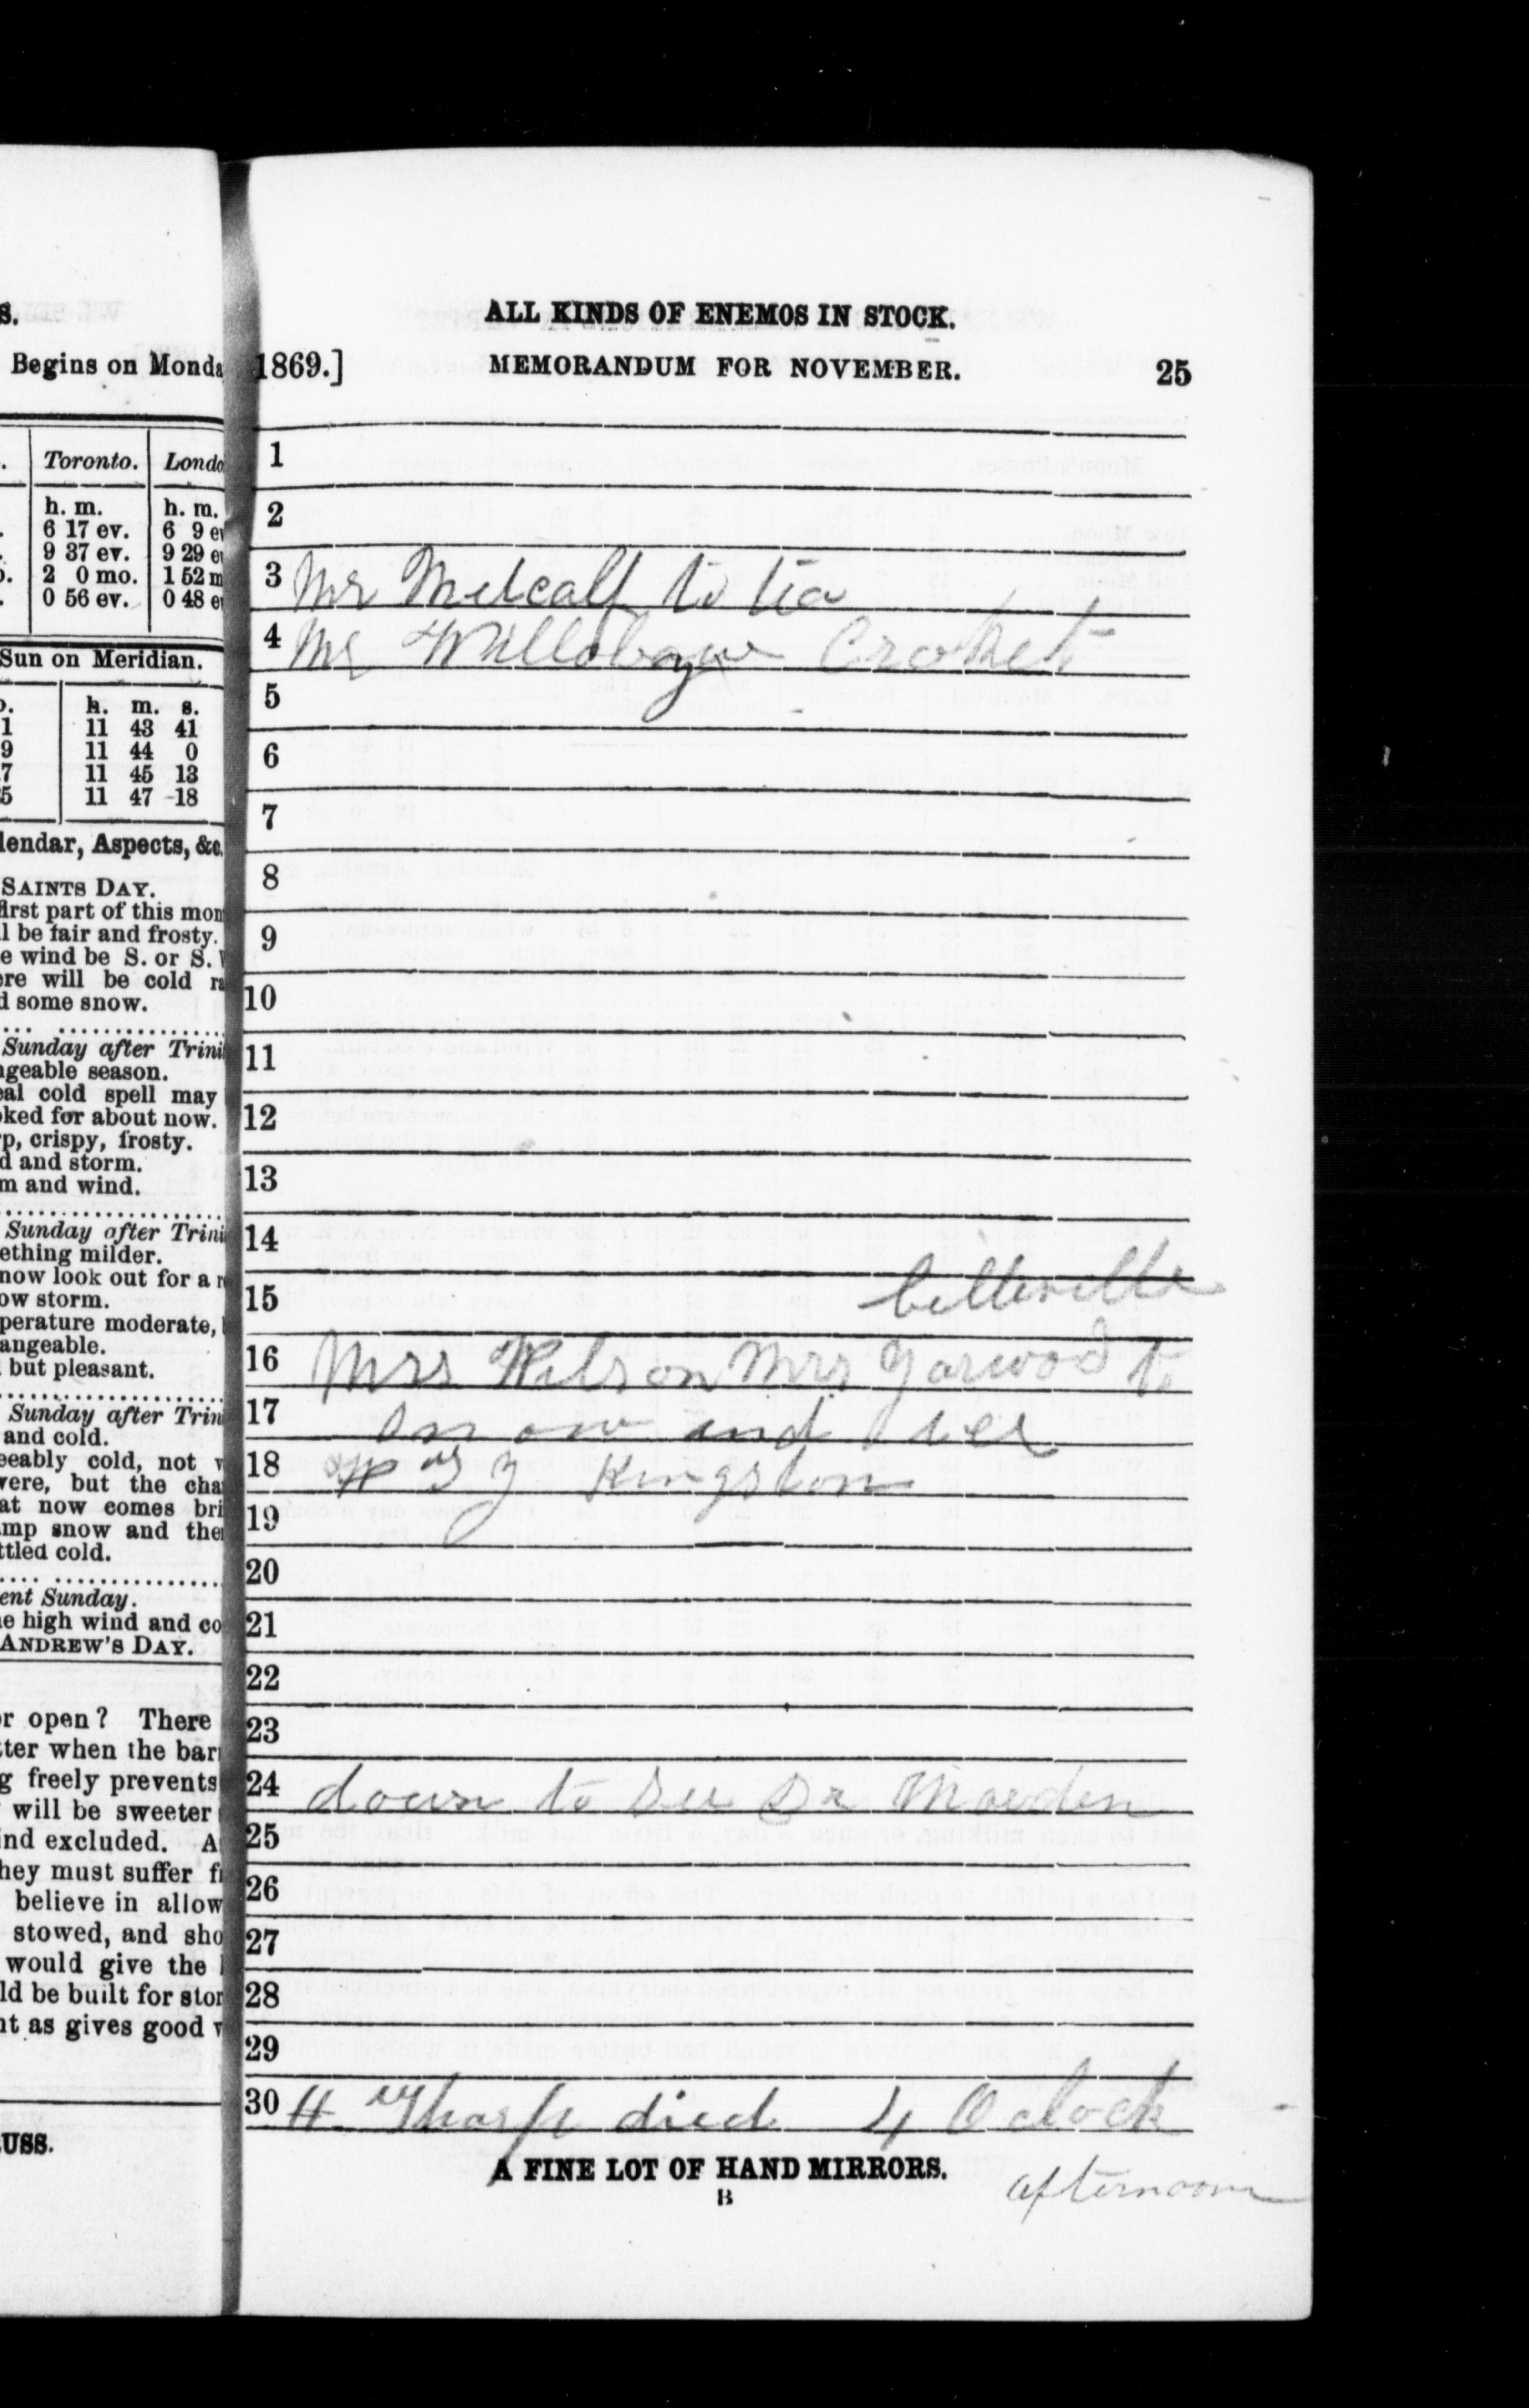 S.
Begins on Monda
. Toronto. Londo
h. m. h. m.
. 6 17 ev. 6 9 ev
. 9 37 ev. 9 29 ev
o. 2 0 mo. 1 52 m
. 0 56 ev. 0 48 ev
Sun on Meridian.
h. m. s.
1 11 43 41
9 11 44 0
7 11 45 13
5 11 47 18
lendar, Aspects, &c.
SAINTS DAY.
first part of this mon
l be fair and frosty.
e wind be S. or S.
ere will be cold ra
d some snow.
Sunday after Trini
ngeable season.
eal cold spell may
oked for about now.
rp, crispy, frosty.
d and storm.
m and wind.
Sunday after Trini
ething milder.
now look out for a r
ow storm.
perature moderate,
angeable.
but pleasant.
Sunday after Trin
and cold.
eeably cold, not v
vere, but the cha
at now comes bri
mp snow and the
ttled cold.
ent Sunday.
e high wind and co
ANDREW'S DAY.
r open? There
ter when the barr
g freely prevents
will be sweeter
ind excluded. A
hey must suffer f
believe in allow
stowed, and sho
would give the
ld be built for stor
nt as gives good v
USS.
ALL KINDS OF ENEMOS IN STOCK.
1869.] MEMORANDUM FOR NOVEMBER. 25
1
2
3 Mr Metcalf to tea
4 Mr
5
6
7
8
9
10
11
12
13
14
15 belleville
16 Mrs Wilson Mrs Yarwood to
17 snow and
18 Kingston
19
20
21
22
23
24 down to see Dr
25
26
27
28
29
30 H Tharp died 4 O clock
afternoon
A FINE LOT OF HAND MIRRORS.
B